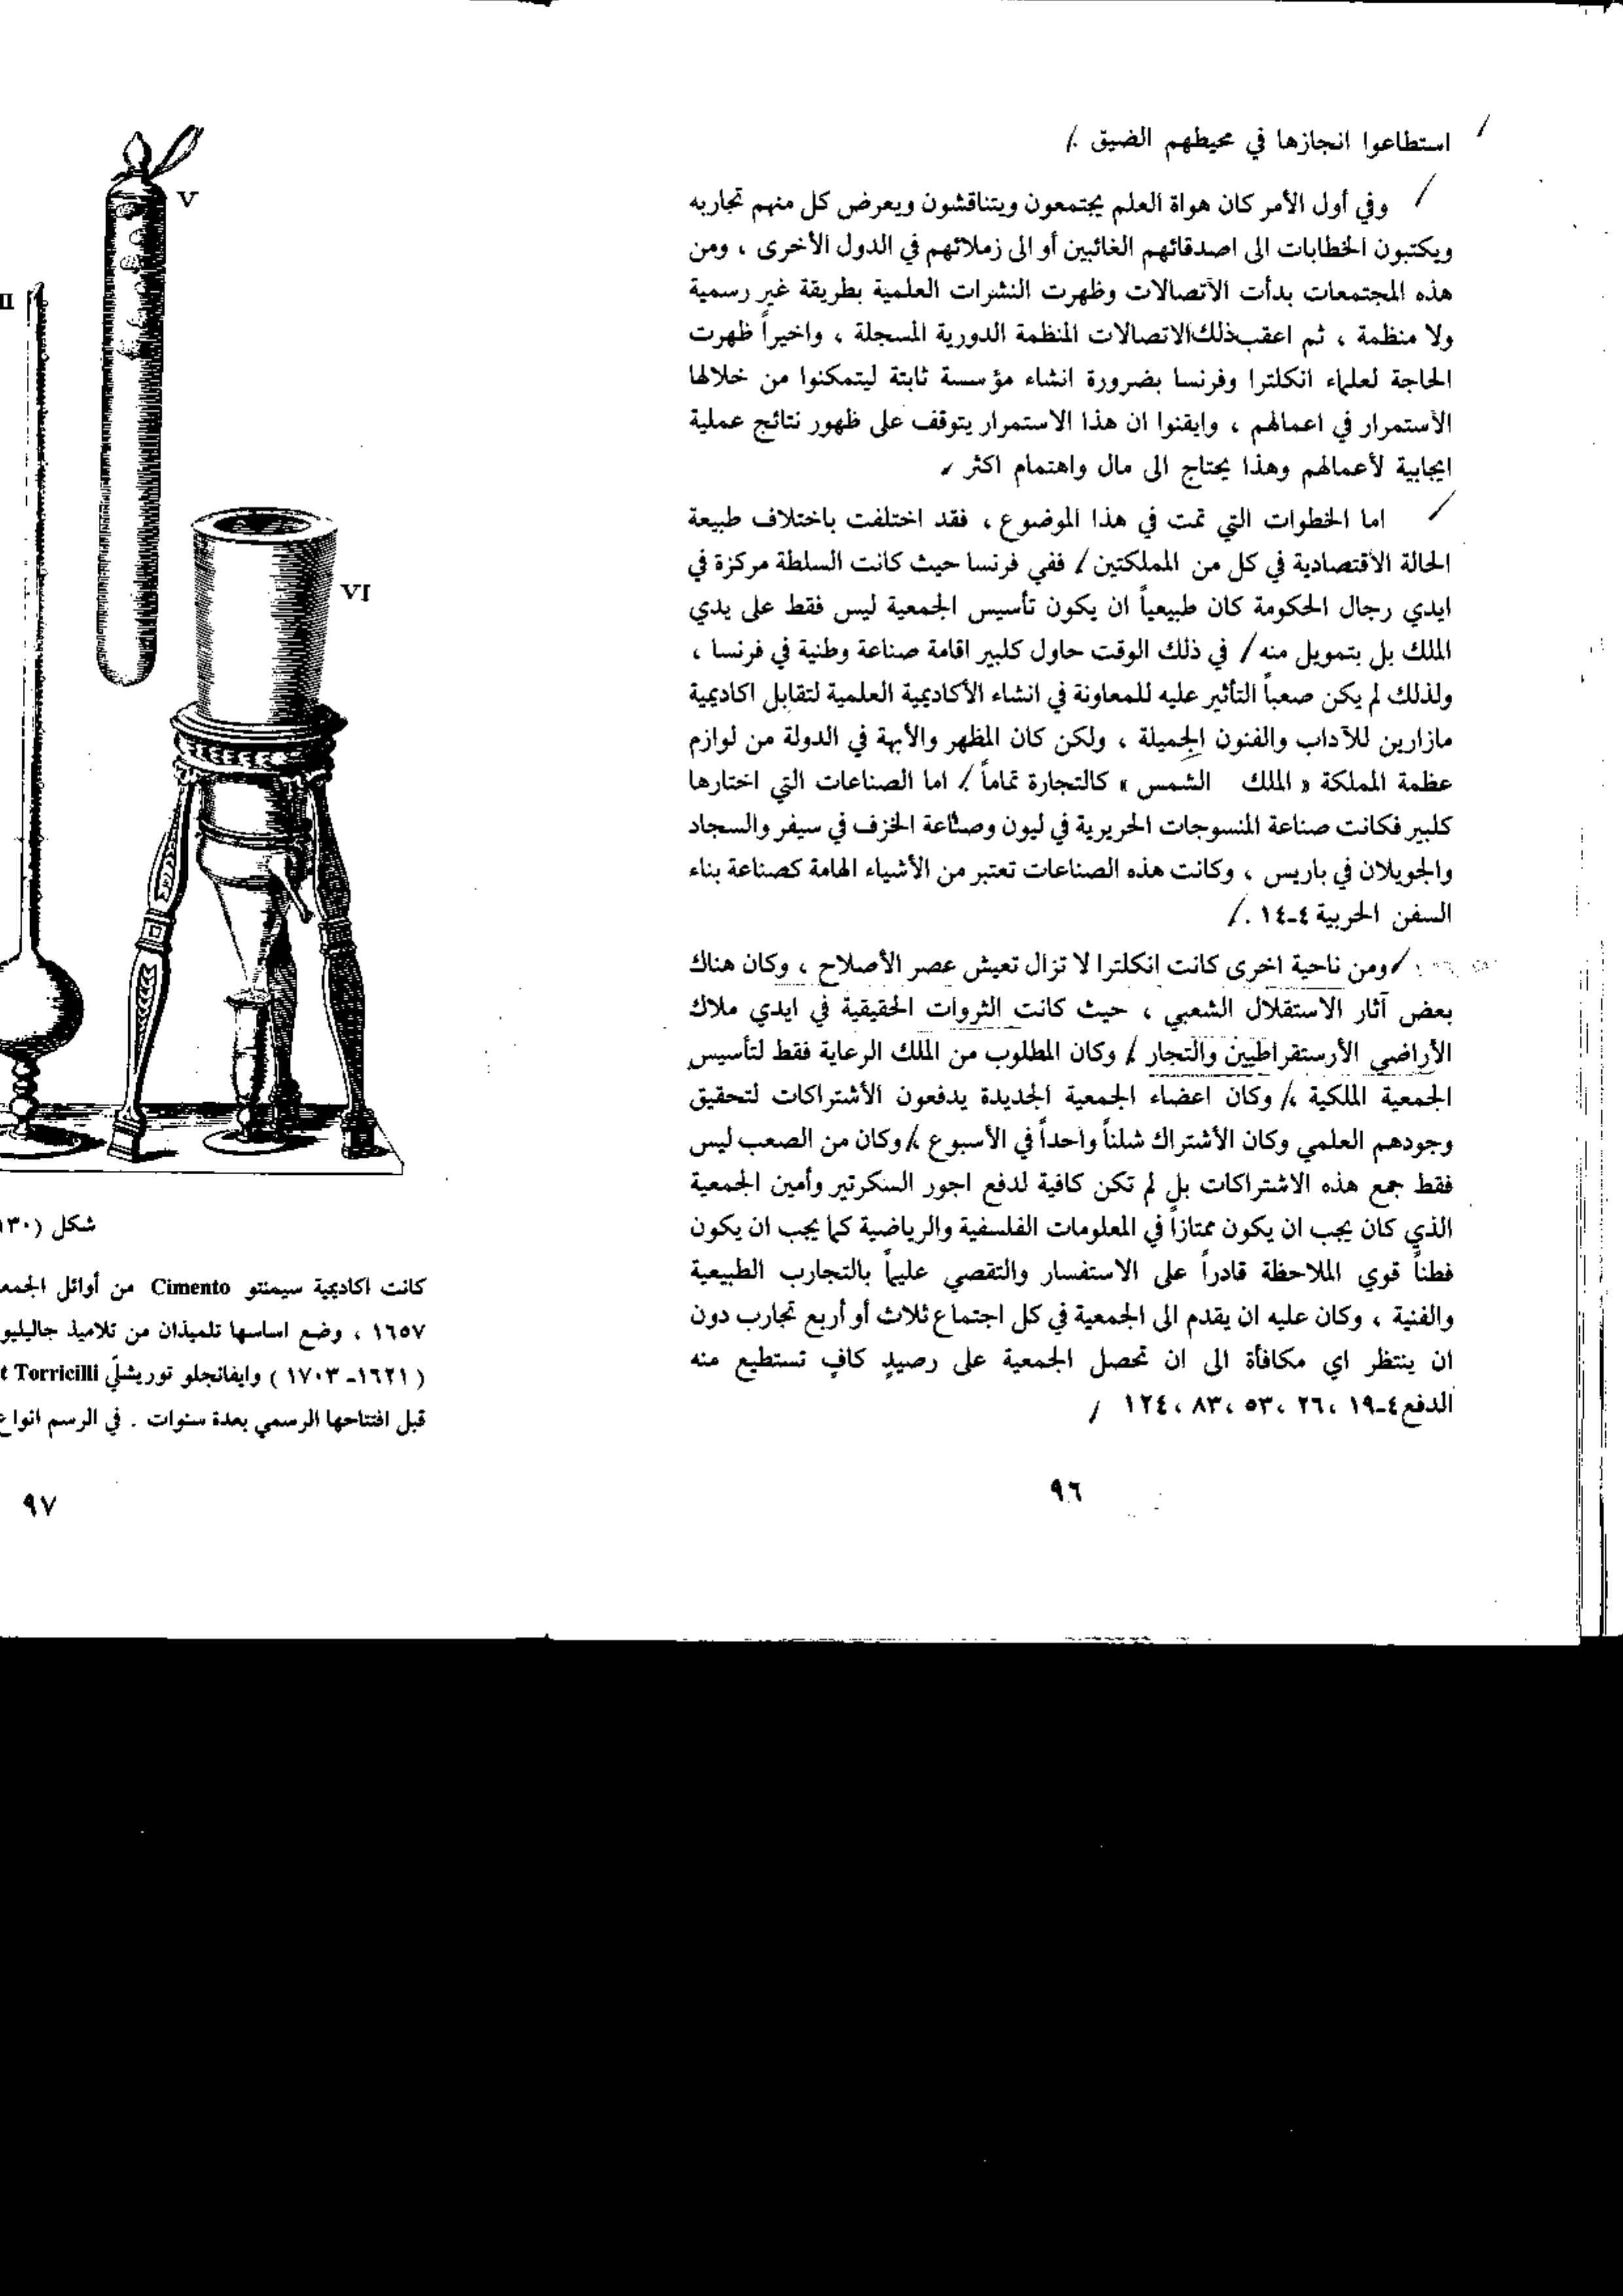 استطاعوا انجازها في محيطهم الضيق .
وفي أول الأمر كان هواة العلم يجتمعون ويتناقشون ويعرض كل منهم تجاربه
ويكتبون الخطابات الى اصدقائهم الغائبين أو الى زملائهم في الدول الأخرى ، ومن
هذه المجتمعات بدأت الأتصالات وظهرت النشرات العلمية بطريقة غير رسمية
ولا منظمة ، ثم اعقب ذلك الاتصالات المنظمة الدورية المسجلة ، واخيراً ظهرت
الحاجة لعلماء انكلترا وفرنسا بضرورة انشاء مؤسسة ثابتة ليتمكنوا من خلالها
الأستمرار في اعمالهم ، وايقنوا ان هذا الاستمرار يتوقف على ظهور نتائج عملية
ايجابية لأعمالهم وهذا يحتاج الى مال واهتمام اكثر
اما الخطوات التي تمت في هذا الموضوع ، فقد اختلفت باختلاف طبيعة
الحالة الأقتصادية في كل من المملكتين / ففي فرنسا حيث كانت السلطة مركزة في
ايدي رجال الحكومة كان طبيعياً ان يكون تأسيس الجمعية ليس فقط على يدي
الملك بل بتمويل منه / في ذلك الوقت حاول كلبير اقامة صناعة وطنية في فرنسا ،
ولذلك لم يكن صعباً التأثير عليه للمعاونة في انشاء الأكاديمية العلمية لتقابل اكاديمية
مازارين للآداب والفنون الجميلة ، ولكن كان المظهر والأبهة في الدولة من لوازم
عظمة المملكة « الملك الشمس » كالتجارة تماماً / اما الصناعات التي اختارها
كلبير فكانت صناعة المنسوجات الحريرية في ليون وصناعة الخزف في سيفر والسجاد
والجويلان في باريس ، وكانت هذه الصناعات تعتبر من الأشياء الهامة كصناعة بناء
السفن الحربية ٤-١٤ .
ومن ناحية اخرى كانت انكلترا لا تزال تعيش عصر الأصلاح ، وكان هناك
بعض آثار الاستقلال الشعبي ، حيث كانت الثروات الحقيقية في ايدي ملاك
الأراضي الأرستقراطيين والتجار / وكان المطلوب من الملك الرعاية فقط لتأسيس
الجمعية الملكية ، / وكان اعضاء الجمعية الجديدة يدفعون الأشتراكات لتحقيق
وجودهم العلمي وكان الأشتراك شلناً واحداً في الأسبوع / وكان من الصعب ليس
فقط جمع هذه الاشتراكات بل لم تكن كافية لدفع اجور السكرتير وأمين الجمعية
الذي كان يجب ان يكون ممتازاً في المعلومات الفلسفية والرياضية كما يجب ان يكون
فطناً قوي الملاحظة قادراً على الاستفسار والتقصي عليماً بالتجارب الطبيعية
والفنية ، وكان عليه ان يقدم الى الجمعية في كل اجتماع ثلاث أو أربع تجارب دون
ان ينتظر اي مكافأة الى ان تحصل الجمعية على رصيدٍ كافٍ تستطيع منه
الدفع ٤-١٩ ، ٢٦ ، ٥٣ ، ٨٣ ، ١٢٤ /
٩٦
V
II
VI
شكل (١٣٠
كانت اكاديمية سيمنتو Cimento من أوائل الجمع
١٦٥٧ ، وضع اساسها تلميذان من تلاميذ جاليليو
( ١٦٢١-١٧٠٣ ) وايفانجلو توريشلّي t Torricilli
قبل افتتاحها الرسمي بعدة سنوات . في الرسم انواع
٩٧